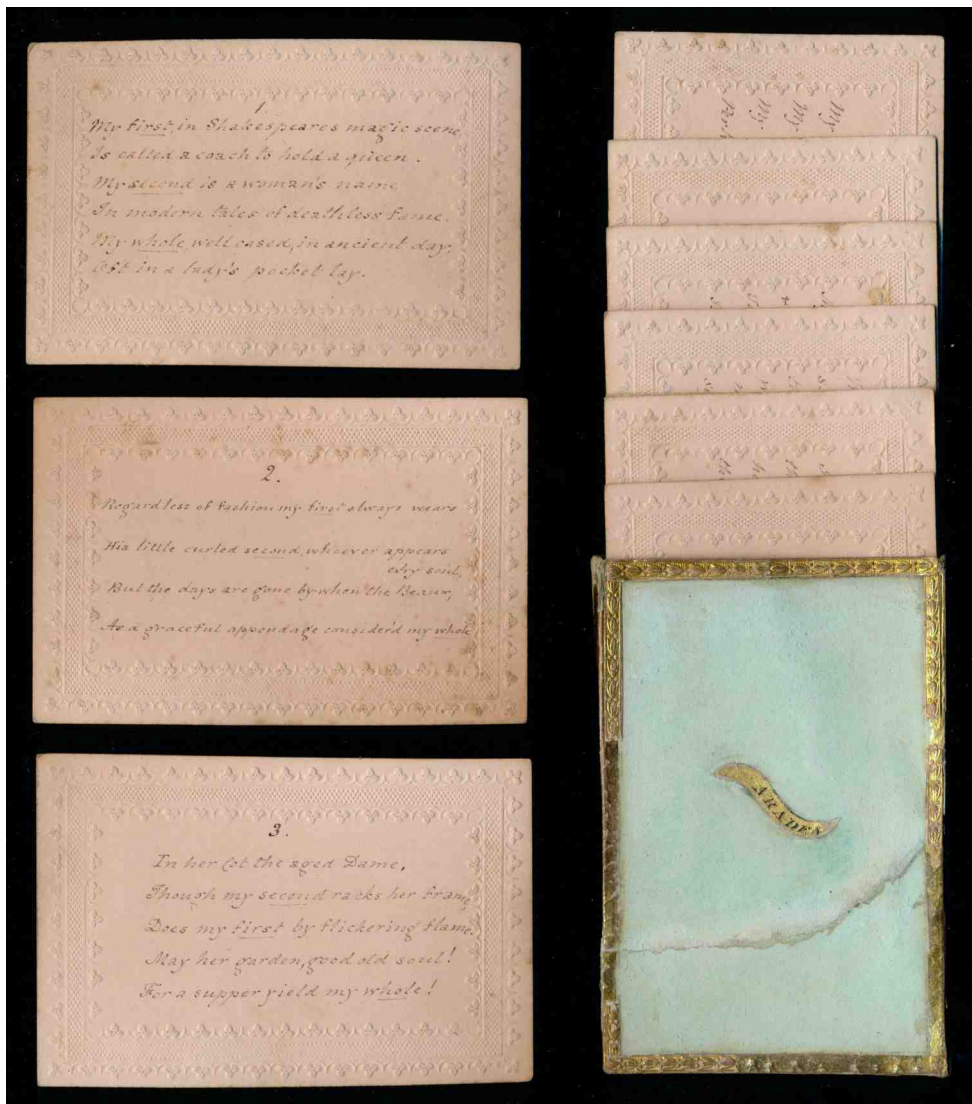 1.
My first, in Shakespeares magic scene
Is called a coach to hold a queen.
My second is a woman's name
In modern tales of deathless fame.
My whole, well cased, in ancient day,
Oft in a lady's pocket lay.
2.
Regardless of fashion my first always wears
His little curled second, whoever appears
evry soul,
But the days are gone by when the Beaux,
As a graceful appendage consider'd my whole
3.
In her Cot the aged Dame,
Though my second racks her frame,
Does my first by flickering flame.
May her garden, good old soul!
For a supper yield my whole!
My
My
My
ARADES